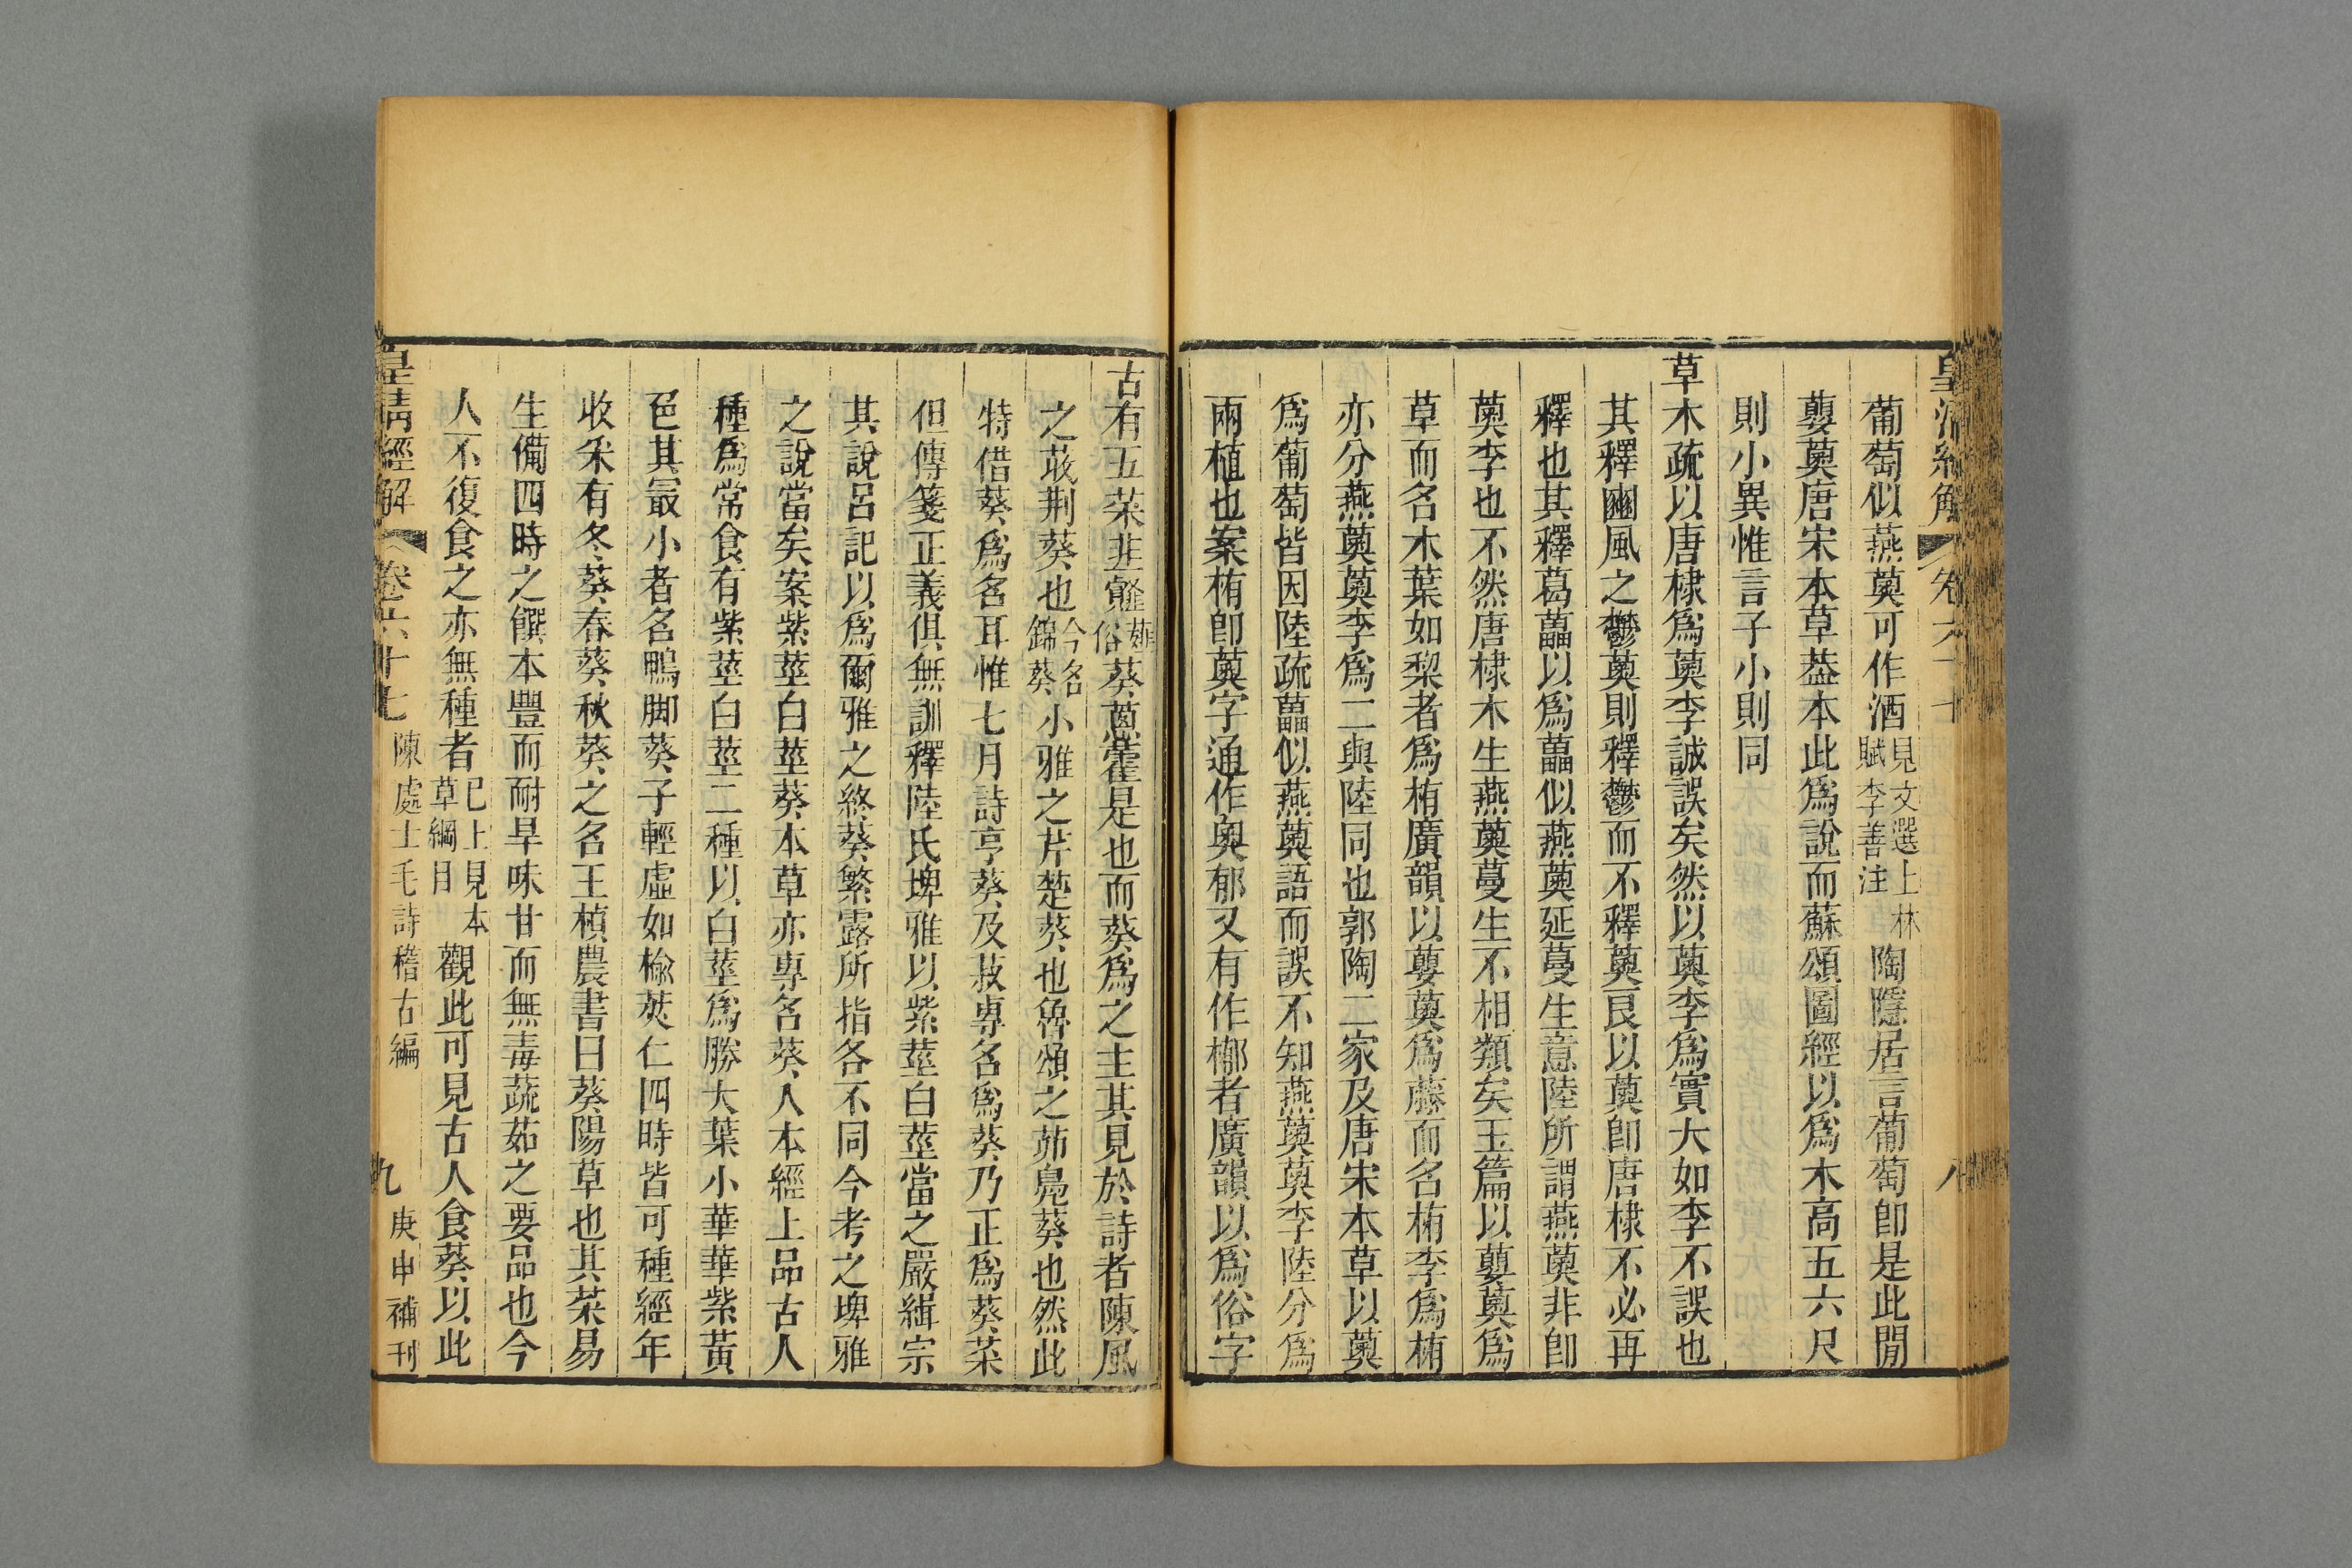 葡萄似燕薁可作酒見文選上林賦李善注陶隱居言葡萄卽是此閒
蘡薁唐宋本草葢本此爲說而蘇頌圖經以爲木高五六尺
則小異惟言子小則同
草木疏以唐棣爲薁李誠誤矣然以薁李爲實大如李不誤也
其釋豳風之鬱薁則釋鬱而不釋薁艮以薁卽唐棣不必再
釋也其釋葛藟以爲藟似燕薁延蔓生意陸所謂燕薁非卽
薁李也不然唐棣木生燕薁蔓生不相類矣玉篇以蘡薁爲
草而名木葉如棃者爲栯廣韻以蘡薁爲藤而名栯李爲栯
亦分燕薁薁李爲二與陸同也郭陶二家及唐宋本草以薁
爲葡萄皆因陸疏藟似燕薁語而誤不知燕薁薁李陸分爲
兩植也案栯卽薁字通作奧郁又有作槨者廣韻以爲俗字
皇清經解
卷六十七
八
古有五菜韭䪥俗薤葵蔥藿是也而葵爲之主其見於詩者陳風
之荍荆葵也今名錦葵小雅之芹楚葵也魯頌之茆鳧葵也然此
特借葵爲名耳惟七月詩亨葵及菽專名爲葵乃正爲葵菜
但傳箋正義俱無訓釋陸氏埤雅以紫莖白莖當之嚴緝宗
其說呂記以爲爾雅之終葵繁露所指各不同今考之埤雅
之說當矣案紫莖白莖葵本草亦專名葵人本經上品古人
種爲常食有紫莖白莖二種以白莖爲勝大葉小華華紫黃
色其㝡小者名鴨脚葵子輕虛如榆莢仁四時皆可種經年
收釆有冬葵春葵秋葵之名王楨農書曰葵陽草也其菜易
生備四時之饌本豐而耐旱味甘而無毒蔬茹之要品也今
人不復食之亦無種者已上見本草綱目觀此可見古人食葵以此
皇清經解
卷六十七
陳處士毛詩稽古編
九
庚申補刊